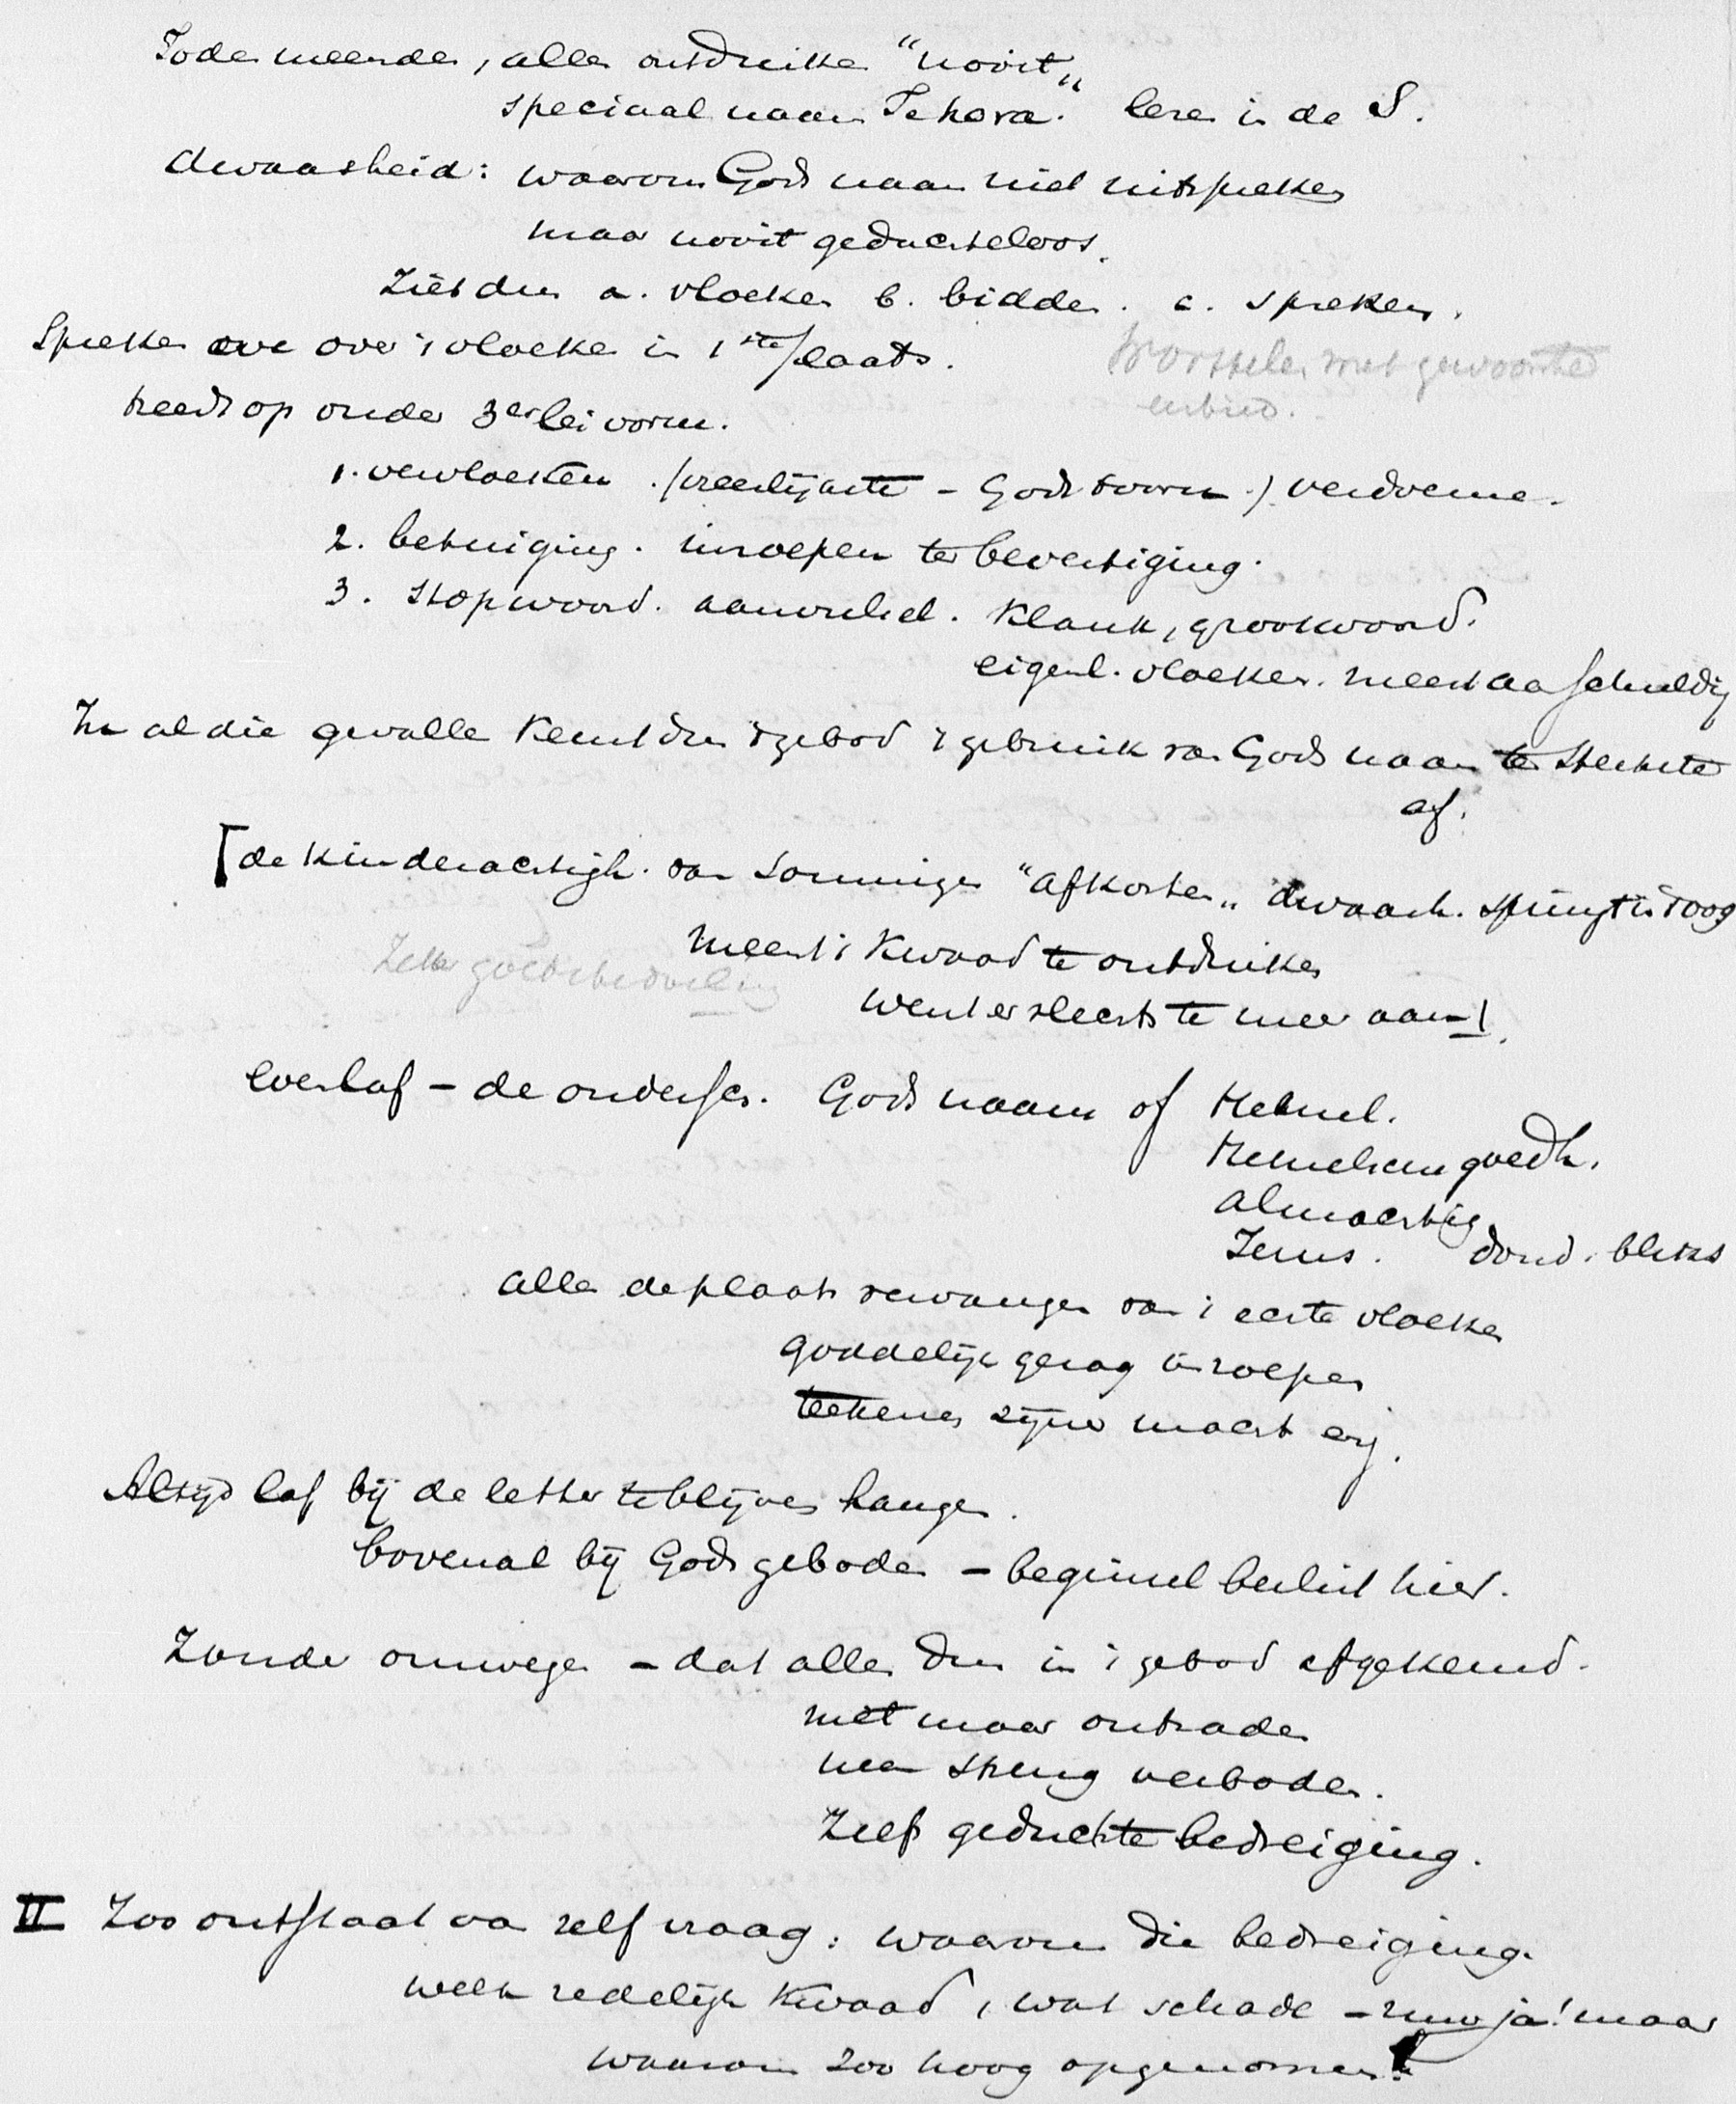 Joden meenden, alles ontduiken "nooit"
speciaal naam Jehova." lezen in de S.
dwaasheid: waarom Gods naam niet uitspreken
maar nooit gedachteloos.
Ziet dus a. vloeken b. bidden. c. spreken.
Spreken over 't vloeken in 1ste plaats.
Worstelen met gewoonte
treedt op onder 3erlei vorm.
1. vervloeken. (vreeslijkste - Gods toorn.) verdoeme.
2. betuiging. inroepen ter bevestiging.
3. stopwoord. aanvulsel. Klank, grootwoord.
eigenl. vloeken. meest aa schuldig
In al die gevallen keurt dus 't gebod 't gebruik van Gods naam ten strengste
af.
[de kinderachtigh. van sommigen "afkorten" dwaash. springt in 't oog
meent 't kwaad te ontduiken
Zeker goede bedoeling
went er slechts te meer aan!
even laf - de anderen. Gods naam of Hemel.
Hemelsche goedh.
almachtig
Jezus. dond. bliks
allen de plaats vervangen van 't eerste vloeken
goddelijk gezag inroepen
teekenen zijner macht enz.
Altijd laf bij de letter te blijven hangen.
bovenal bij Gods geboden - beginsel beslist hier.
Zonder omwegen - dat alles dus in 't gebod afgekeurd.
niet maar ontraden
neen streng verboden.
Zelfs geduchte bedreiging.
II Zoo ontstaat van zelf vraag: waarom die bedreiging.
welk zedelijk kwaad, wat schade - nu ja! maar
waarom zoo hoog opgenomen?